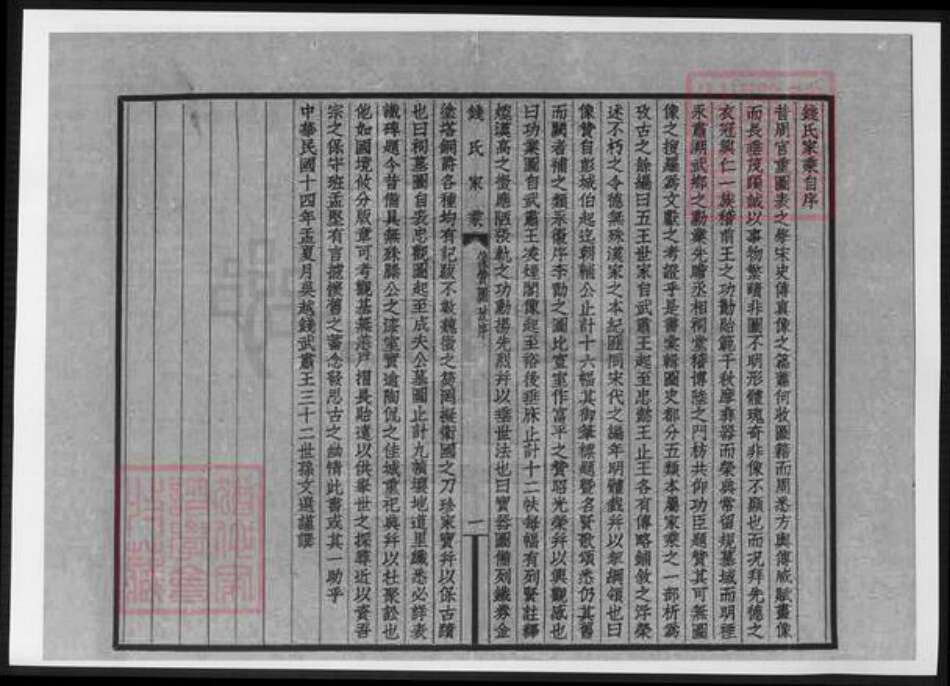 錢氏家乘自序
昔周官重圖表之學宋史傳真像之篇蕭何收圖籍而周悉方輿傅咸賦畫像
而長垂茂躅誠以事物繁賾非圖不明形體瑰奇非像不顯也而況拜先德之
衣冠與仁一族稽前王之功勳貽範千秋摩彝器而榮典常留規墓域而明禋
永肅溯武鄉之勳業先瞻丞相祠堂稽傅陸之門榜共仰功臣題贊其可無圖
像之搜羅為文獻之考證乎是書彙輯圖史都分五類本屬家乘之一部析為
攷古之餘編曰五王世家自武肅王起至忠懿王止王各有傳略鋪敘之浮榮
述不朽之令德無殊漢家之本紀匪同宋代之編年明體裁幷以挈綱領也曰
像贊自彭城伯起迄朝輔公止計十六幅其御筆標題暨名賢歌頌悉仍其舊
而闕者補之類永徽序李勣之圖比宣室作富平之贊昭光榮幷以興觀感也
曰功業圖自武肅王凌煙閣像起至裕後垂床止計十二帙每幅有列賢註釋
媲漢高之徵應陋張軌之功勳揚先烈幷以垂世法也曰寶器圖備列鐵券金
錢氏家乘
像贊圖 序
一
塗塔銅爵各種均有記跋不數魏徵之笏罔擬衛國之刀珍家寶幷以保古蹟
也曰祠墓圖自表忠觀圖起至成夫公墓圖止計九禎壤地道里纖悉必詳表
識碑題今昔備具無殊滕公之漆室實逾陶侃之佳城重祀典幷以杜聚訟也
他如國境攸分版章可考觀基無恙戶摺長貽遠以供舉世之探尋近以資吾
宗之保守班孟堅有言攄懷舊之蓄念發思古之幽情此書或其一助乎
中華民國十四年孟夏月吳越錢武肅王三十二世孫文選謹譔